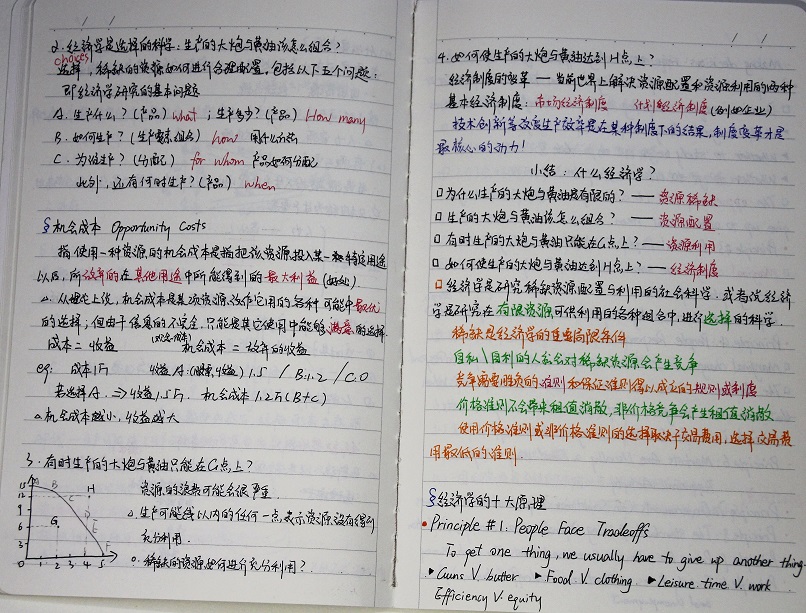 2. 经济学是选择的科学：生产的大炮与黄油该怎么组合？
choices
选择，稀缺的资源如何进行合理配置，包括以下五个问题：
即经济学研究的基本问题
A. 生产什么？(产品) what ；生产多少？(产品) How many
B. 如何生产？(生产要素组合) how 用什么方法
C. 为谁生产？(分配) for whom 产品如何分配
此外，还有何时生产？(产品) when
§ 机会成本 Opportunity Costs
指使用一种资源的机会成本是指把该资源投入某一特定用途
以后，所放弃的在其他用途中所能得到的最大利益 (好处)
△. 从理论上说，机会成本是某项资源没作它用的各种可能中最优
的选择；但由于信息的不完全，只能是其它使用中能够满意的选择.
成本 = 收益 机会成本 = 放弃的收益
eg: 成本1万 收益A: 1.5 / B: 1.2 / C. 0
若选择A. ⇒ 收益1.5万. 机会成本1.2万 (B+C)
△ 机会成本越小，收益越大
3. 有时生产的大炮与黄油只能在G点上？
15 B H
12 C
9 D
6 G E
3
0 1 2 3 4 5 F
资源的浪费可能会很严重.
△. 生产可能线以内的任何一点，表示资源没有得到
充分利用.
△. 稀缺的资源如何进行充分利用？
4. 如何使生产的大炮与黄油达到H点上？
经济制度的变革 — 当前世界上解决资源配置和资源利用的两种
基本经济制度：市场经济制度 计划经济制度
技术创新等改变生产效率是在某种制度下的结果，制度变革才是
最核心的动力！
小结：什么经济学？
□ 为什么生产的大炮与黄油是有限的？ — 资源稀缺
□ 生产的大炮与黄油该怎么组合？ — 资源配置
□ 有时生产的大炮与黄油只能在G点上？ — 资源利用
□ 如何使生产的大炮与黄油达到H点上？ — 经济制度
□ 经济学是研究稀缺资源配置与利用的社会科学. 或者说经济
学是研究在有限资源可供利用的各种组合中，进行选择的科学.
稀缺是经济学的重要局限条件
自私\自利的人会对稀缺资源会产生竞争
竞争需要胜负的准则和保证准则得以成立的规则或制度
价格准则不会带来租值消散，非价格竞争会产生租值消散
使用价格准则或非价格准则的选择取决于交易费用，选择交易费
用最低的准则.
§ 经济学的十大原理
• Principle #1: People Face Tradeoffs
To get one thing, we usually have to give up another thing.
▸ Guns V. butter ▸ Food V. clothing ▸ Leisure time V. work
Efficiency V. equity